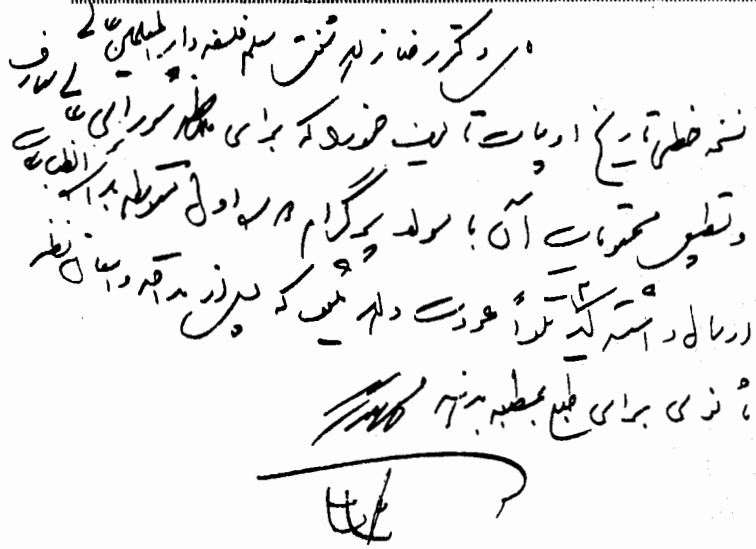 آقای دکتر رضازاده شفق معلم فلسفه دارالمعلمین عالی
نسخه خطی تاریخ ادبیات تألیف خود را که برای ملاحظه شورای عالی معارف
و تطبیق محتویات آن با مواد پروگرام سه سال اول متوسطه به
ارسال داشته اید تلواً عودت داده میشود که پس از مداقه و امعان نظر
ثانوی برای طبع بمطبعه بدهید